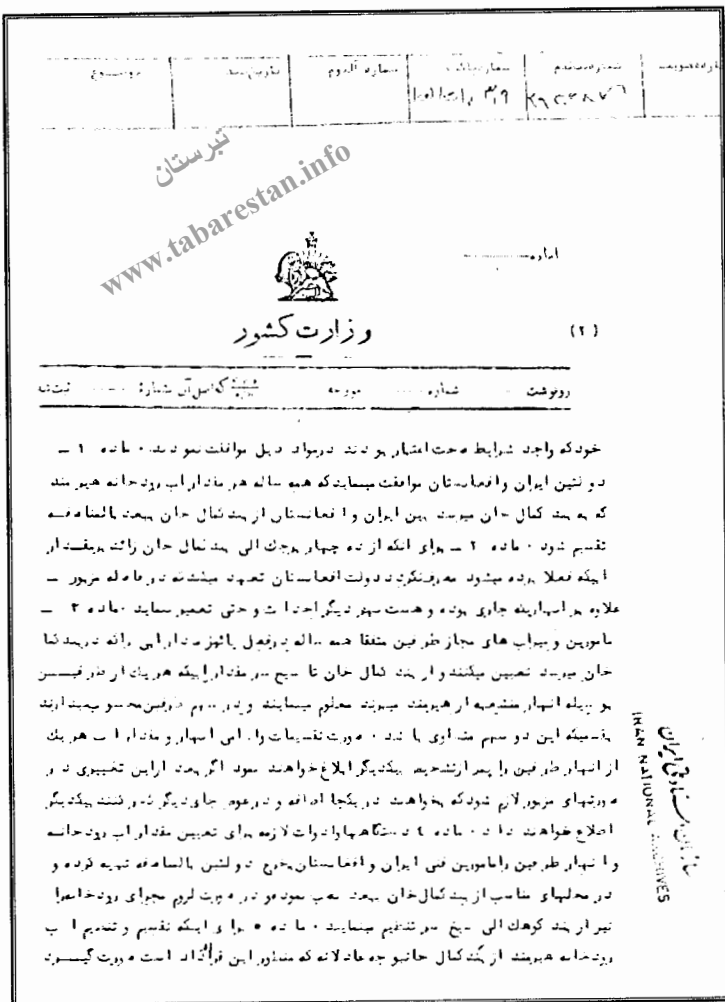 شماره تصویب شماره مقدم شماره پاکت شماره آلبوم تاریخ سند موضوع
۳۱۹
تبرستان
www.tabarestan.info
اداره
وزارت کشور
(۲)
رونوشت شماره مورخه که اصل آن بشماره ثبت شده
خود که واجد شرایط صحت اعتبار بودند در مواد ذیل موافقت نمودند. ماده ۱ ـ
دولتین ایران و افغانستان موافقت مینمایند که همه ساله هر مقدار آب رودخانه هیرمند
که به بند کمال خان میرسد بین ایران و افغانستان از بند کمال خان ببعد بالمناصفه
تقسیم شود. ماده ۲ ـ برای آنکه از ده چهار برجک الی بند کمال خان زائد بر مقدار
آبیکه فعلا برده میشود مصرف نگردد دولت افغانستان تعهد میکند که در فاصله مزبور ـ
علاوه بر انهاریکه جاری بوده و هست نهر دیگر احداث و حتی تعمیر ننماید. ماده ۳ ـ
مامورین و میراب های مجاز طرفین متفقا همه ساله در فصل پائیز مقدار آبی را که در بند کما
خان میرسد تعیین میکنند و از بند کمال خان تا سیخ سر مقدار آبیکه هر یک از طرفین
بوسیله انهار منشعبه از هیرمند میبرند معلوم مینمایند و در سهم طرفین محسوب میدارند
بقسمیکه این دو سهم متساوی باشد. صورت تقسیمات و اسامی انهار و مقدار آب هر یک
از انهار طرفین را پس از تشخیص بیکدیگر ابلاغ خواهند نمود اگر بعد از این تغییری در
صورتهای مزبور لازم شود که بخواهند در یکجا اضافه و در عوض جای دیگر کم کنند بیکدیگر
اطلاع خواهند داد. ماده ٤ دستگاهها و ادوات لازمه برای تعیین مقدار آب رودخانه
و انهار طرفین را مامورین فنی ایران و افغانستان بخرج دولتین بالمناصفه تهیه کرده و
در محلهای مناسب از بند کمال خان ببعد نصب نموده و در صورت لزوم مجرای رودخانه را
نیز از بند کوهک الی سیخ سر تنظیم مینمایند. ماده ۵ برای اینکه تقسیم و تقدیم آب
رودخانه هیرمند از بند کمال خان بوجه عادلانه که منظور این قرارداد است صورت گیرد
سازمان اسناد ملی ایران
IRAN NATIONAL ARCHIVES